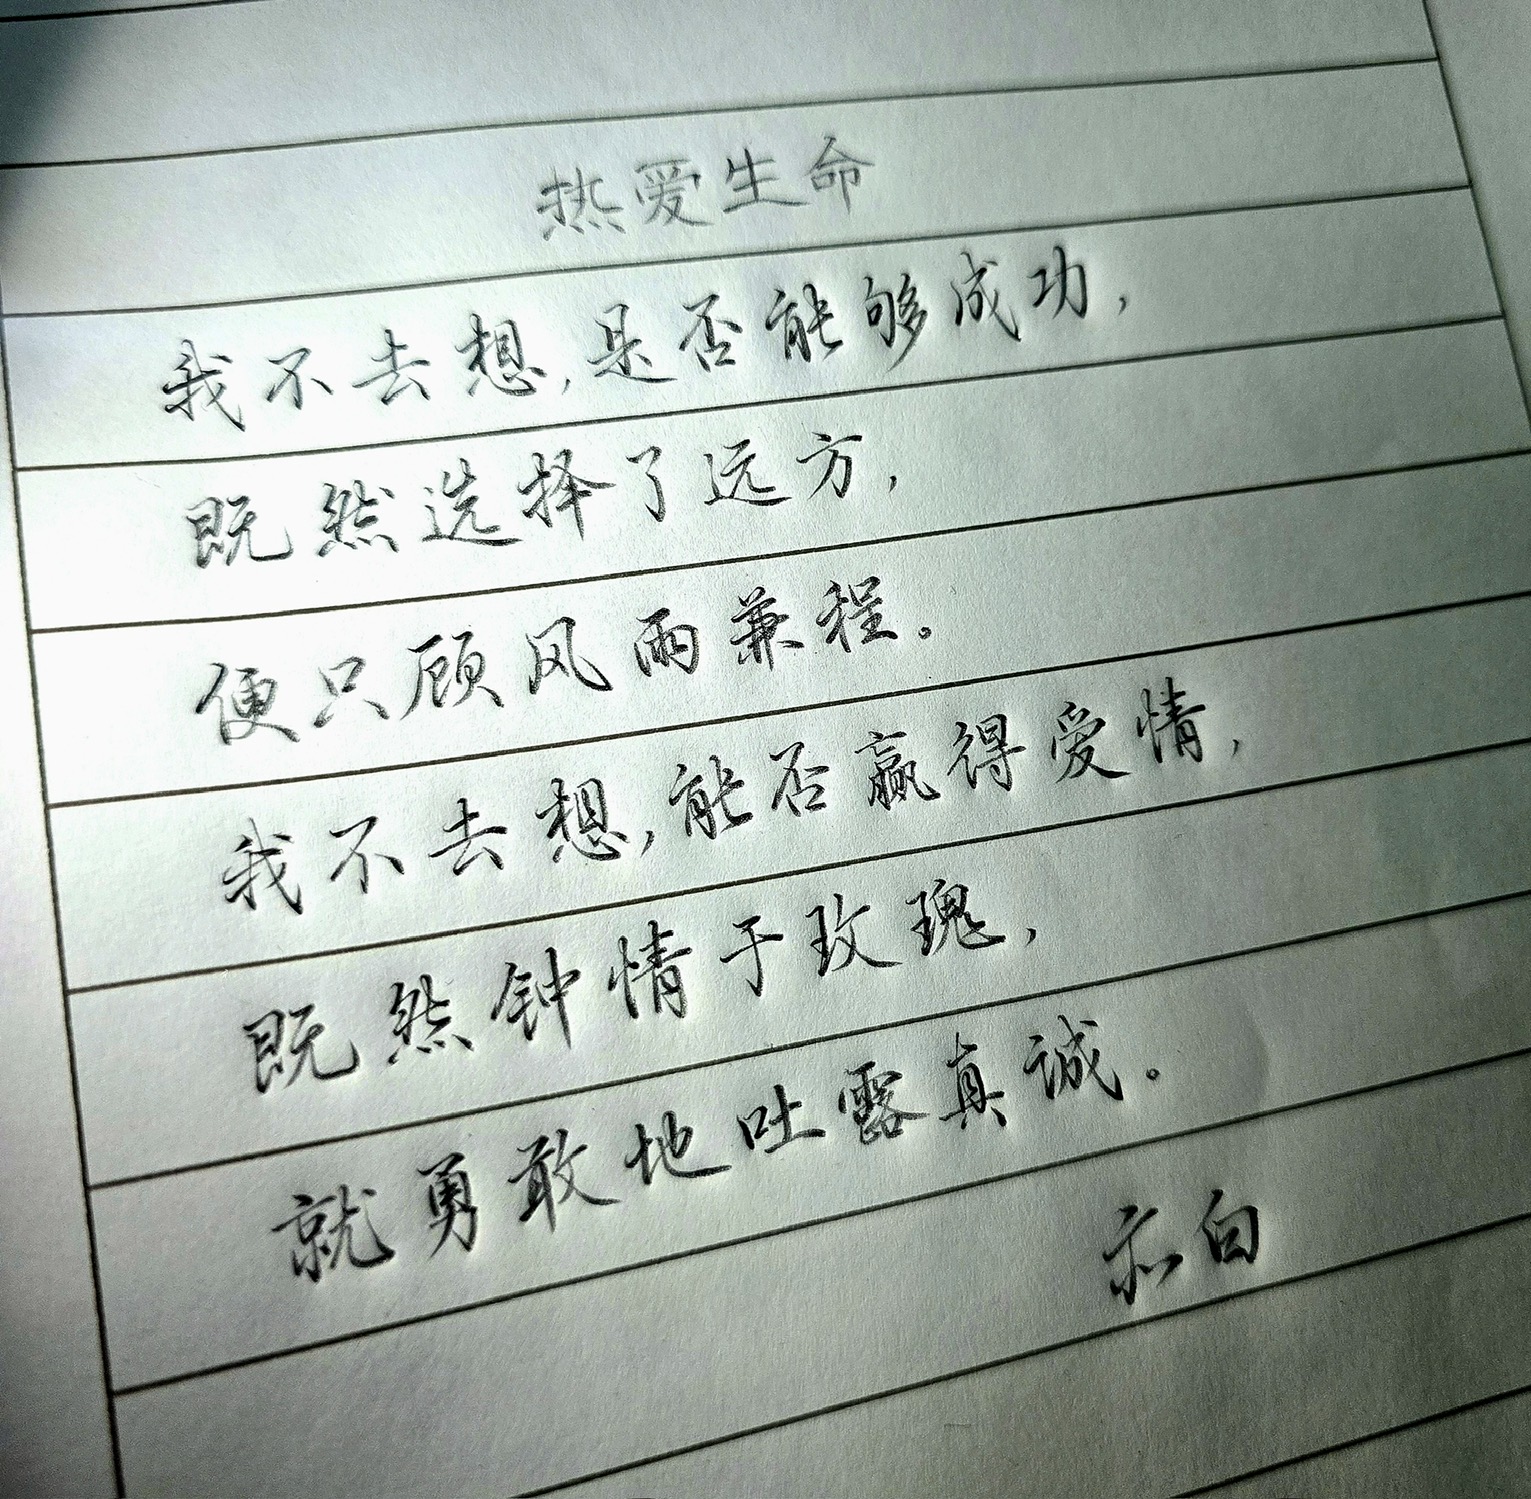 热爱生命
我不去想,是否能够成功,
既然选择了远方,
便只顾风雨兼程。
我不去想,能否赢得爱情,
既然钟情于玫瑰,
就勇敢地吐露真诚。
白